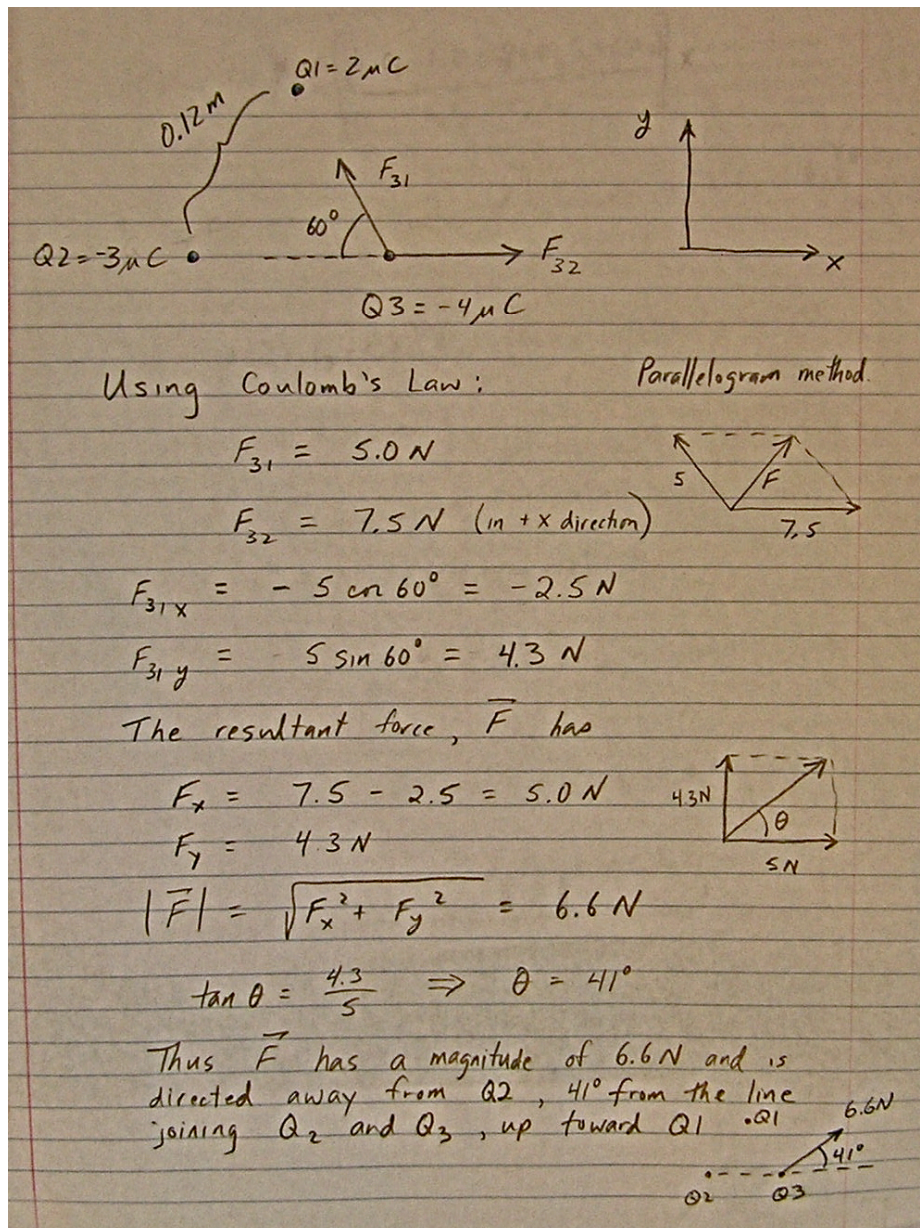 Q1 = 2 μC
0.12 m
y
F31
60°
Q2 = -3 μC
F32
x
Q3 = -4 μC
Using Coulomb's Law:
Parallelogram method.
F31 = 5.0 N
5
F
F32 = 7.5 N (in + x direction)
7.5
F31x = - 5 cos 60° = - 2.5 N
F31y = 5 sin 60° = 4.3 N
The resultant force, F⃗ has
Fx = 7.5 - 2.5 = 5.0 N
4.3N
θ
Fy = 4.3 N
5N
|F⃗| = √(Fx² + Fy²) = 6.6 N
tan θ = 4.3/5 ⇒ θ = 41°
Thus F⃗ has a magnitude of 6.6 N and is
directed away from Q2, 41° from the line
joining Q2 and Q3, up toward Q1
Q1
6.6N
41°
Q2
Q3